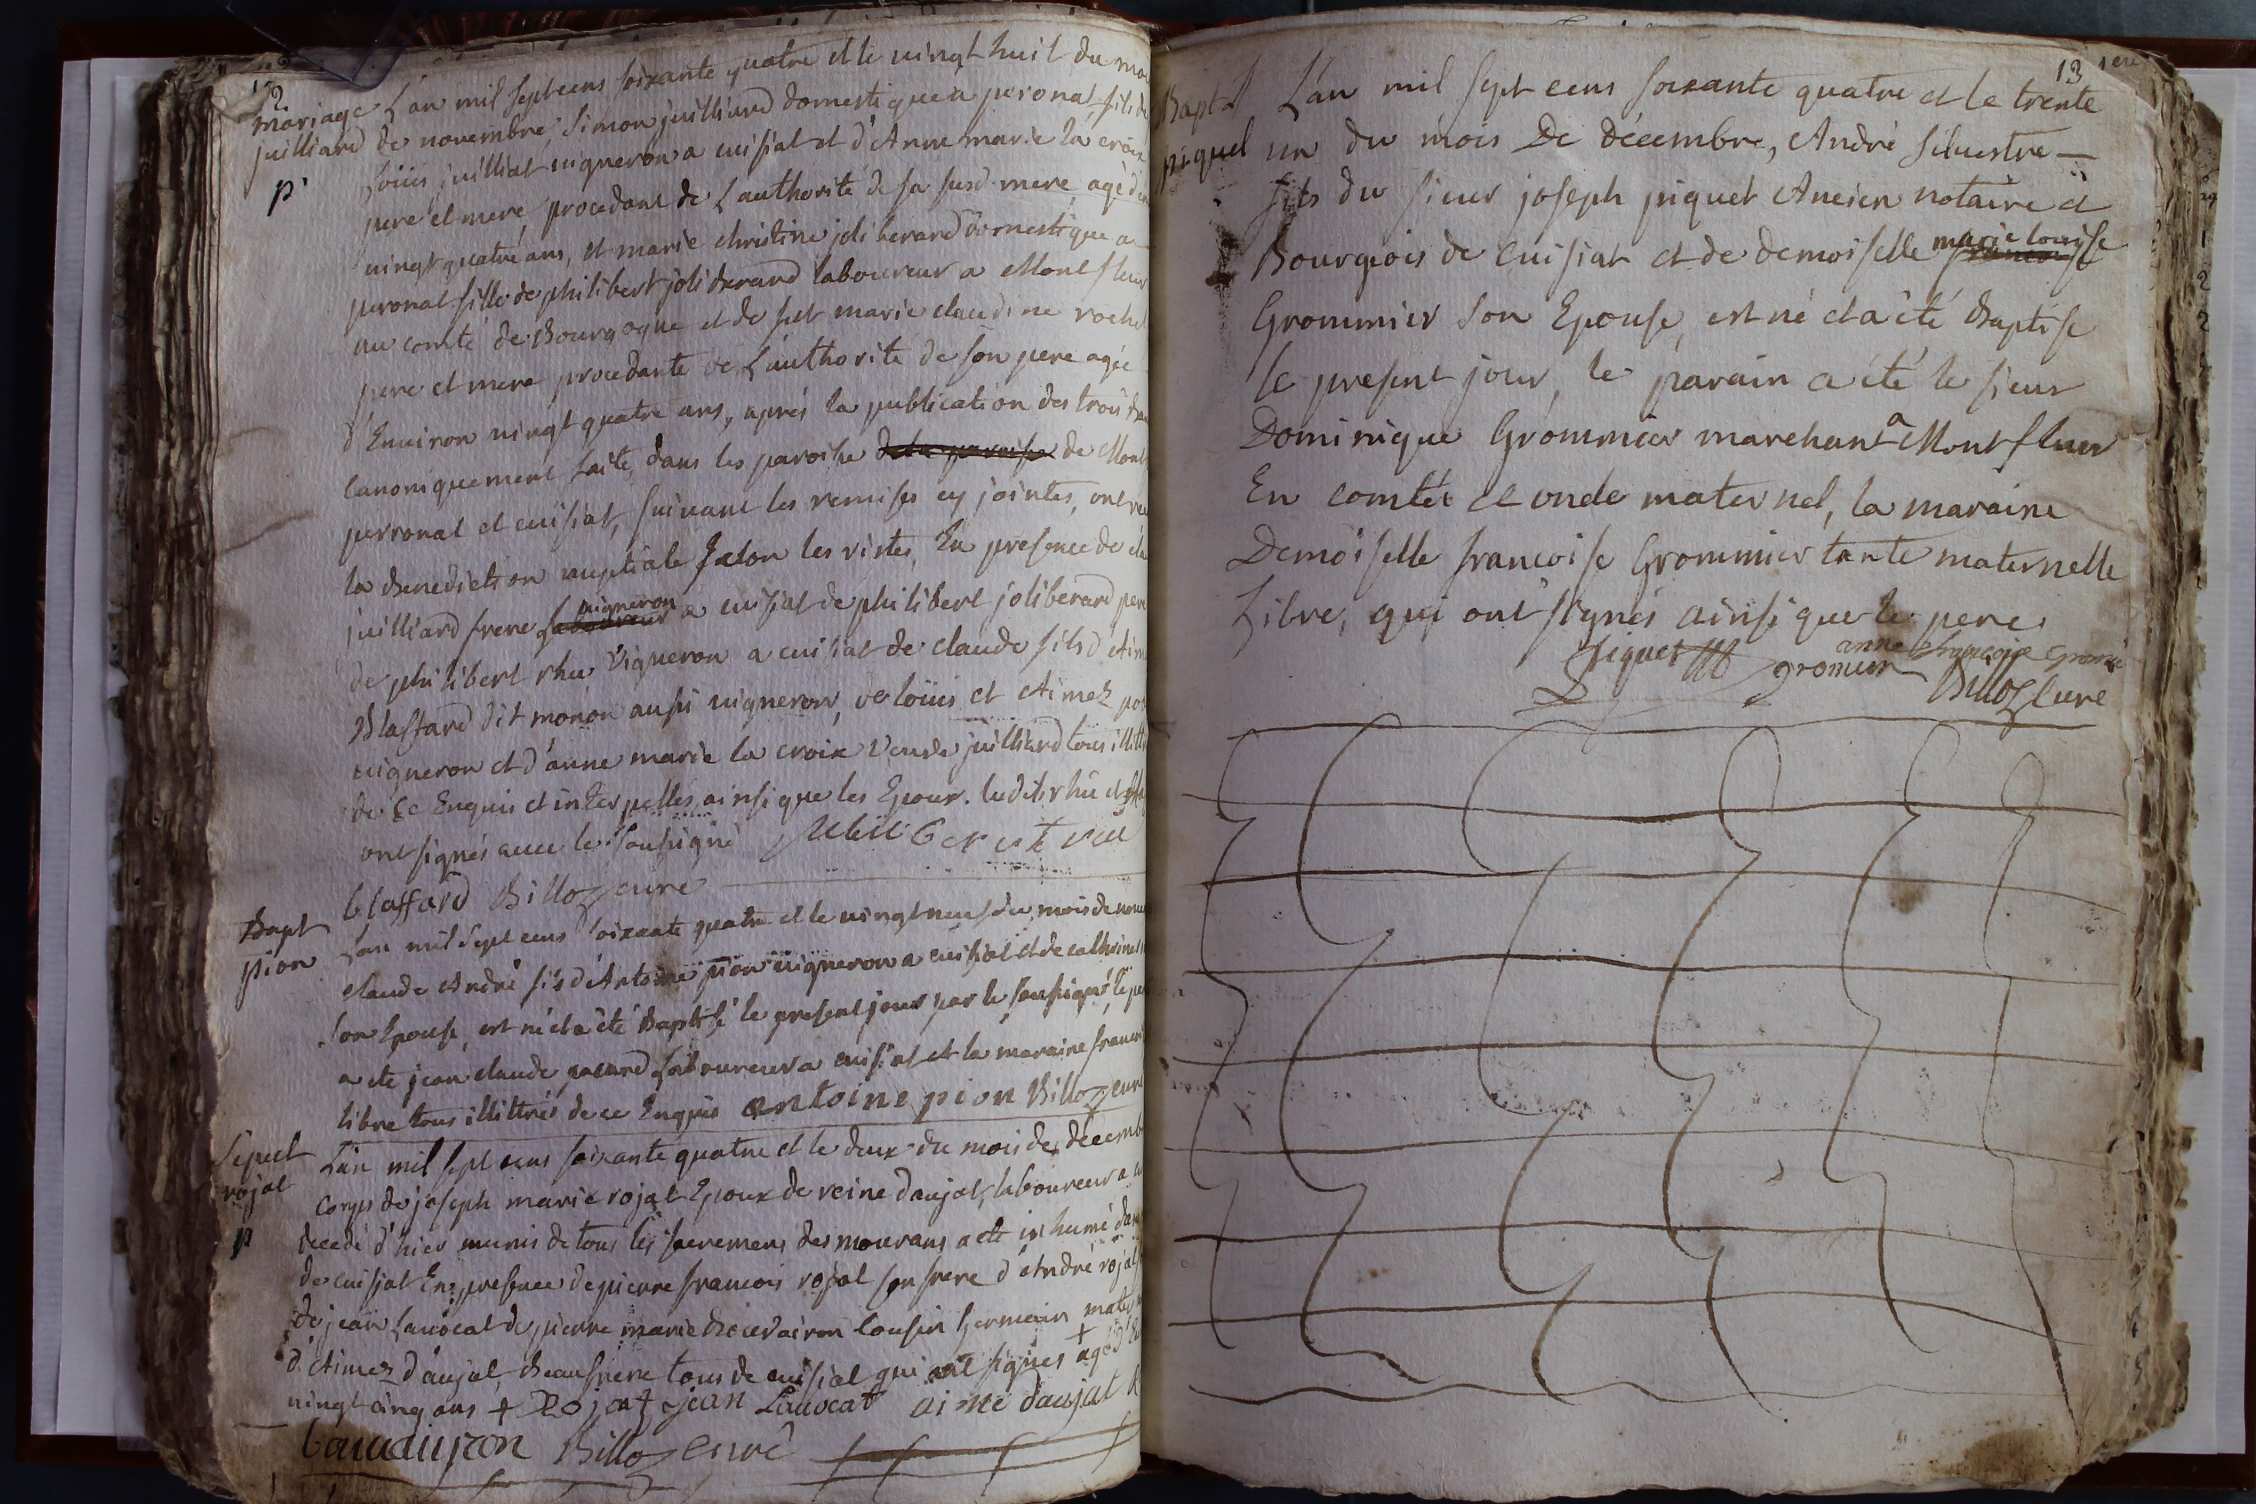 12
mariage L'an mil sept cens soixante quatre et le vingt huit du mo
juilliard de novembre, Simon juilliard domestique a peronat fils de
p Loüis juilliat vigneron a cuisiat et d'Anne marie la croix
pere et mere, procedant de L'authorité de sa susd mere, agé d'en
vingt quatre ans, et marie christine joliberard domestique a
peronat fille de philibert joliberard laboureur a Montfleur
au comté de Bourgogne et de fut marie claudine rochet
pere et mere procedante de L'authorité de son pere agée
d'Environ vingt quatre ans, aprés la publication des trois ban
Canoniquement faite, dans les paroisse de la paroisse de Mont
perronat et cuisiat, suivant les remises cy jointes, ont reç
la Benediction nuptiale selon les ristes, En presence de cla
juilliard frere laboureur vigneron a cuisiat de philibert joliberard pere
de philibert rhu Vigneron a cuisiat de claude fils d'Aim
Blaffard dit monon aussi vigneron, de loüis et Aimez
vigneron et d'anne marie la croix Veuve juilliard tous illitt
de ce Enquis et interpellés, ainsi que les Epoux. ledit rhu et
ont signés avec le soussigné
blaffard Billoz curé
Bapt L'an mil sept cens soixante quatre et le vingt neuf du mois de nove
pion claude André fils d'Antoine pion vigneron a cuisiat et de catherine
son Epouse, est né et a été Baptisé le present jour par le soussigné le pa
a été jean claude pacard Laboureur a cuisiat et la maraine francoi
libre tous illittrés de ce Enquis antoine pion Billoz curé
Sepult L'an mil sept cens soixante quatre et le deux du mois de décemb
rojat corps de joseph marie rojat Epoux de reine daujat, laboureur a cu
p decedé d'hier munis de tous les sacremens des mourans a été inhumé dan
de cuisiat En presence de pierre francois rojat son frere d'André rojat
de jean Lavocat de pierre marie cousin Germain mater
d'Aimez daujat, Beaufrere tous de cuisiat qui ont signés + agé d'En
vingt cinq ans + Rojat jean Lavocat aimé daujat
Billoz curé
13
Bapt L'an mil sept cens soixante quatre et le trente
piquet un du mois De décembre, André Silvestre
fils du sieur joseph piquet Ancien notaire et
Bourgeois de cuisiat et de demoiselle marie louise francoise
Grommier son Epouse, est né et a été Baptise
le present jour, le parain a été le sieur
Dominique Grommier marchant a Montfleur
En comtét et oncle maternel, la maraine
Demoiselle francoise Grommier tante maternelle
Libre, qui ont signés ainsi que le pere
Piquet gromier anne francoise Gromié
Billoz curé